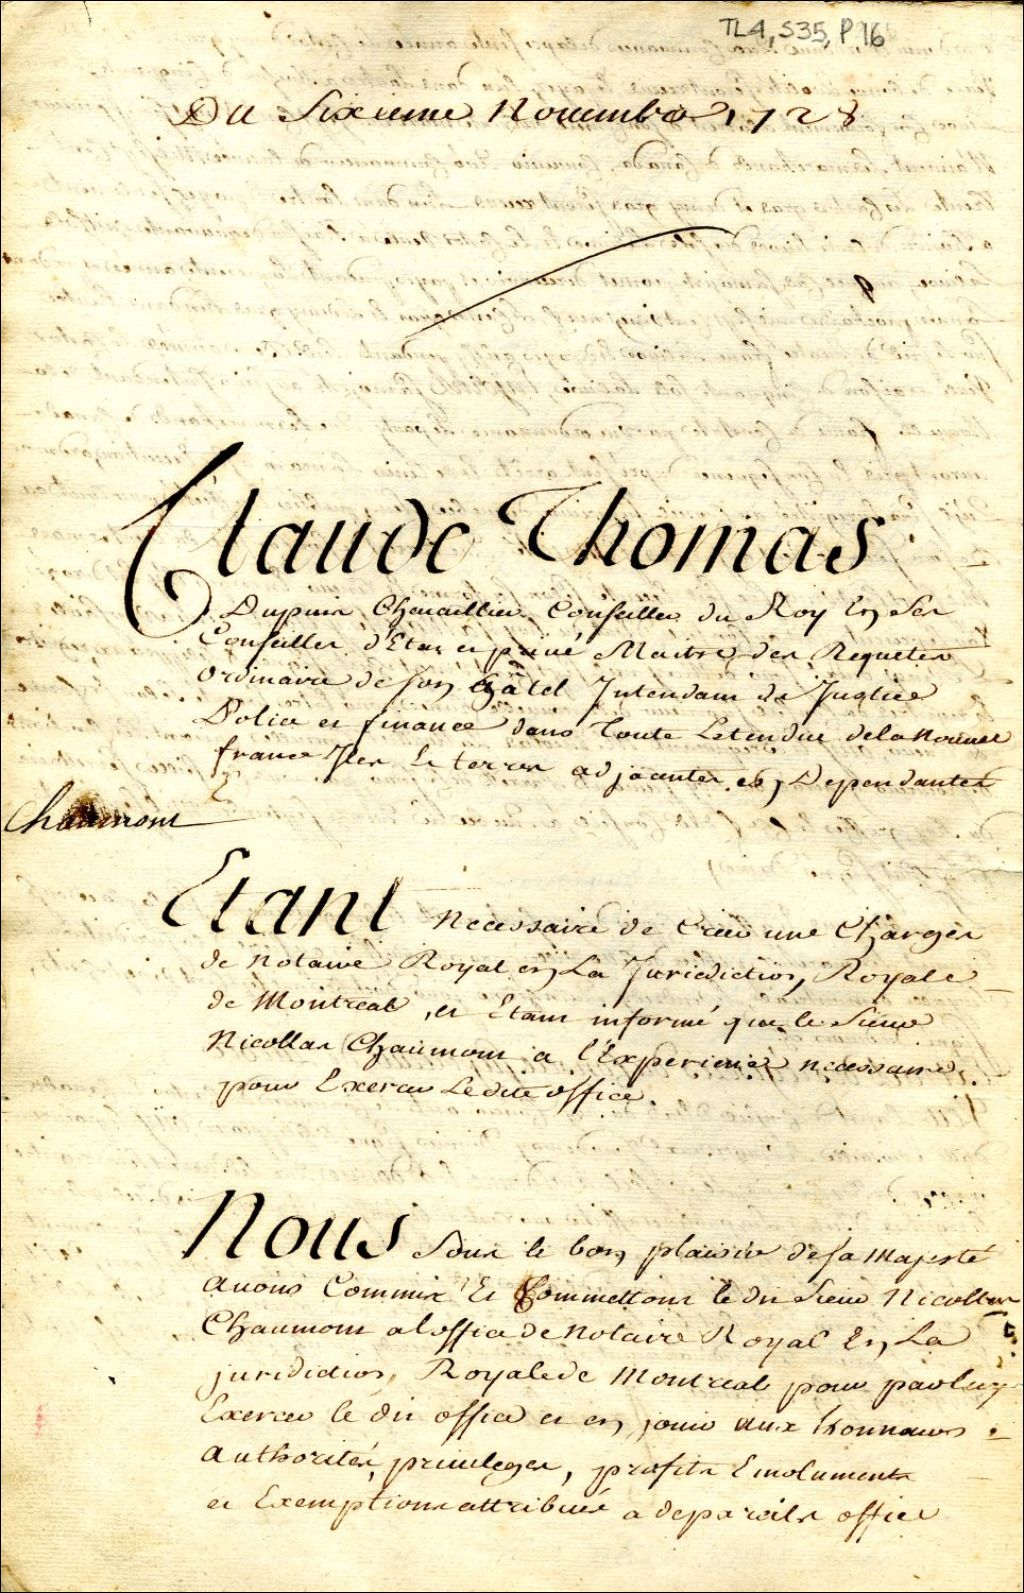 TL4, S35, P 16
Du Sixieme Nouembre 1728
Claude Thomas
Dupuis Cheuaillier Conseiller du Roy En Ses
Conseilles d'Etat et privé Maitre des Requetes
Ordinaire de son hôtel Intendant de Justice
Police et finance dans toute Letendue de la Nouuel
france Isles Et terres adjacentes en Dependantes
Chaumont
Etant Necessaire de Créer une Charges
de Notaire Royal en La Juridiction Royale
de Montreal, et Etant informé que le Sieur
Nicollas Chaumont a l'Experience necessaire
pour Exercer Ledite office.
Nous Sous le bon plaisir de sa Majesté
auons Commis Et Commettons le dit Sieur Nicollas
Chaumont a loffice de Notaire Royal En La
juridiction Royale de Montreal pour par luy
Exercer le dit office et en jouir aux honneurs
authorités, priuileges, profits Emoluments
et Exemptions attribués a depareils office